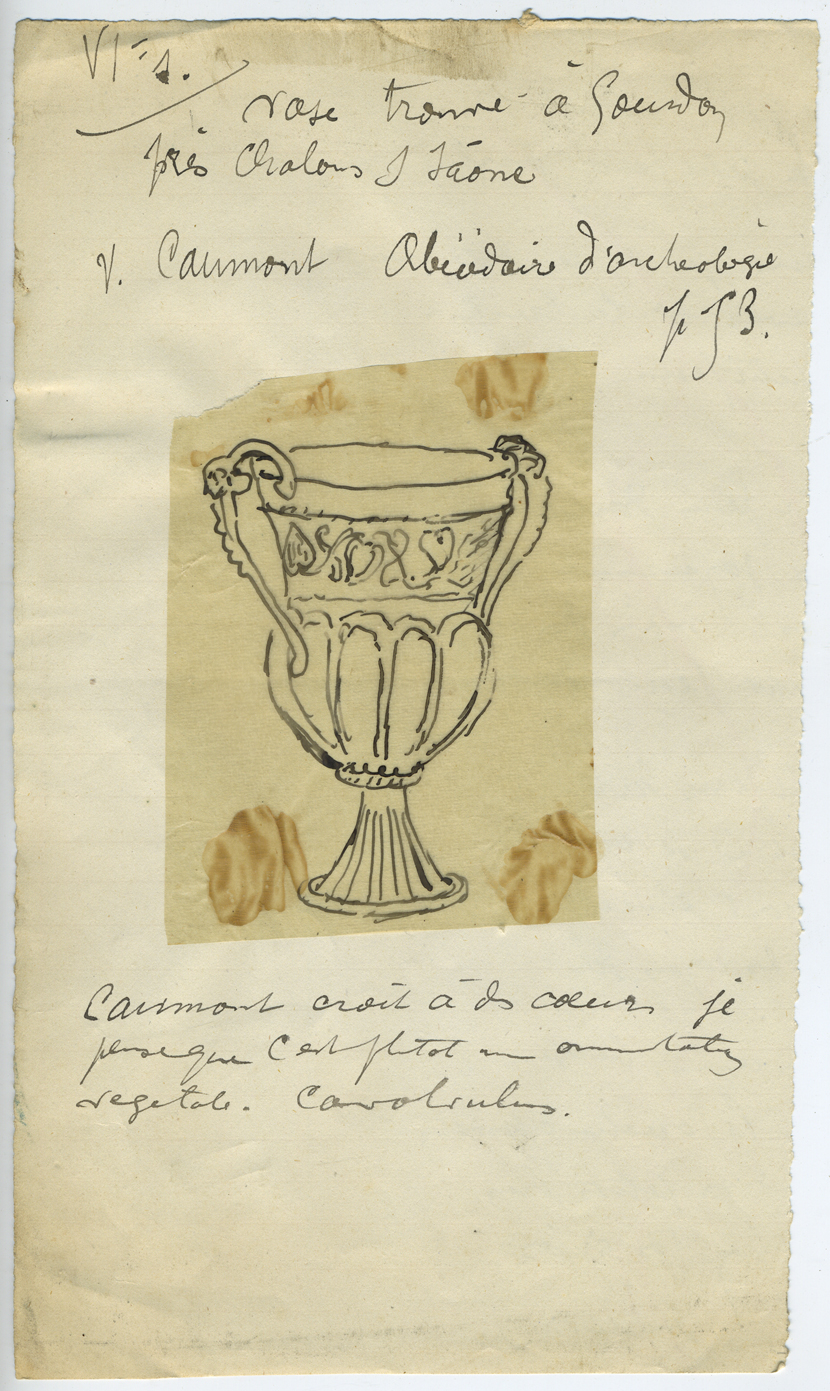 VIe s.
vase trouvé à Gourdon
près Chalons s Saone
V. Caumont Abécédaire d'archeologie
p 53.
Caumont croit à ds cœurs je
pense que c'est plutot une ornementation
vegetale.